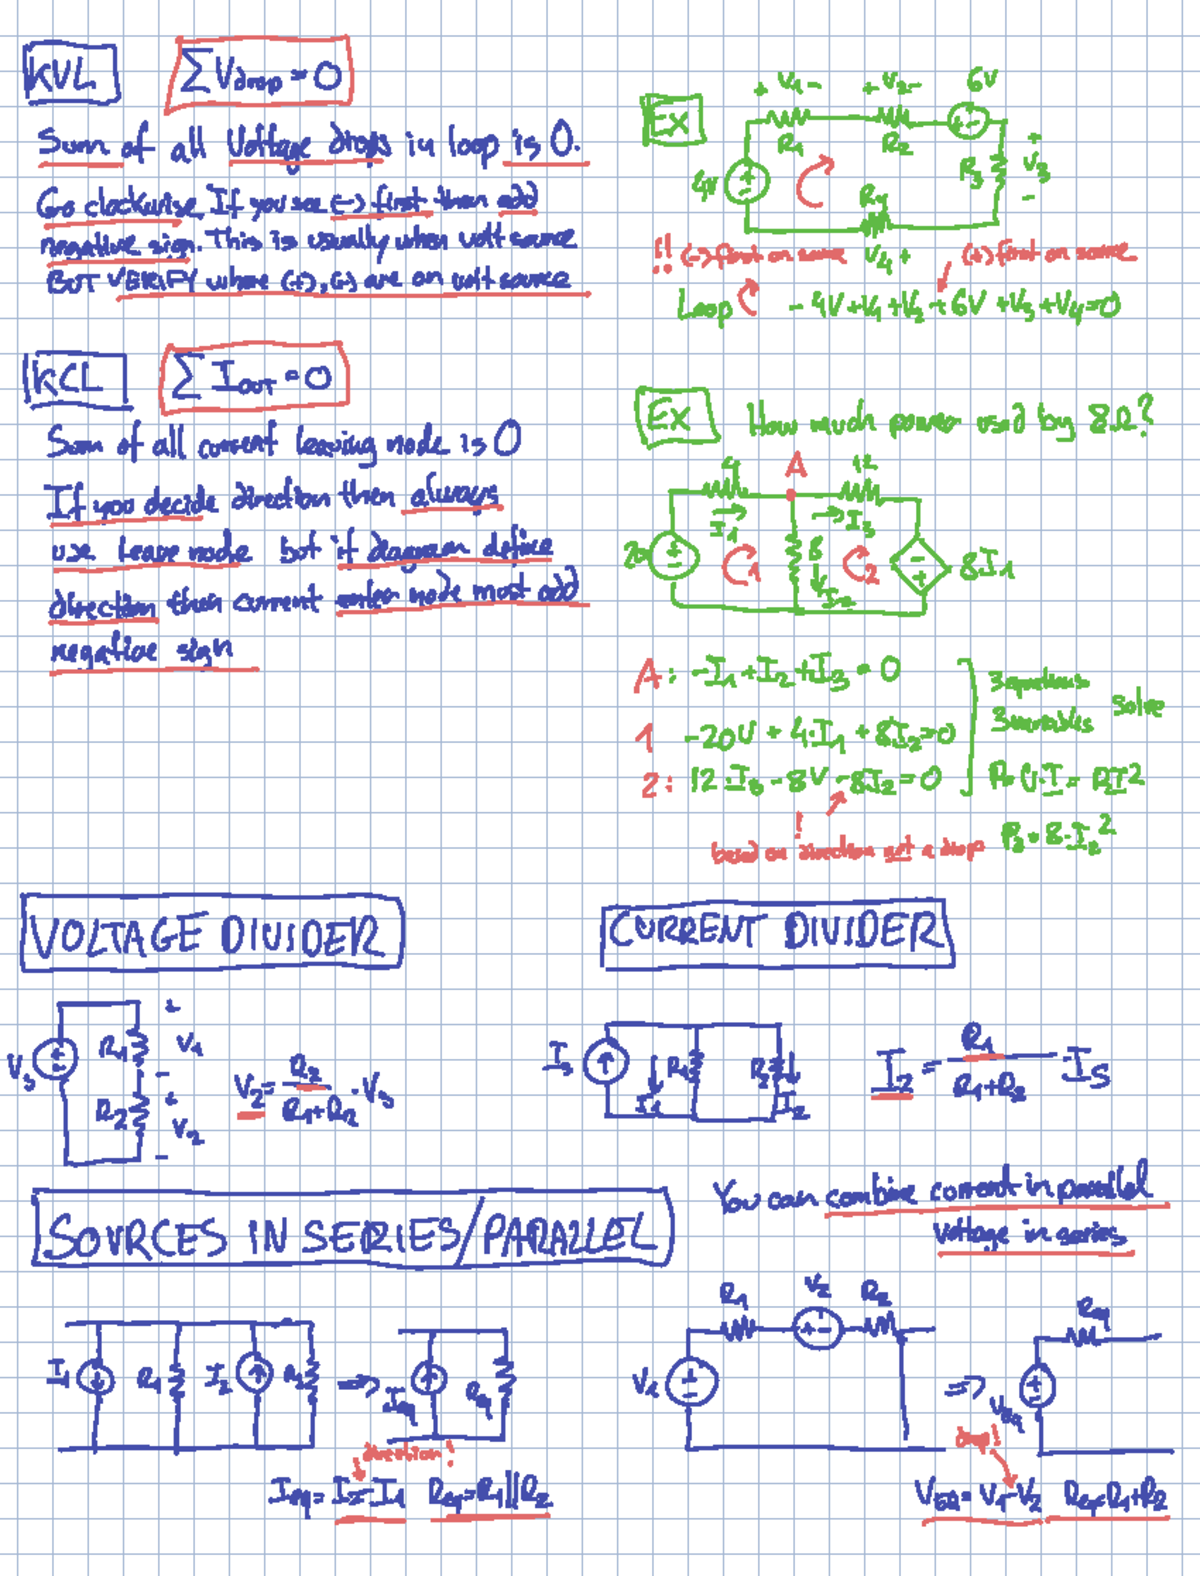 KVL
∑Vdrop = 0
Sum of all Voltage drops in loop is 0.
Go clockwise. If you see (-) first then add
negative sign. This is usually when volt source
BUT VERIFY where (+), (-) are on volt source
EX
+ V1 -
+ V2 -
6V
R1
R2
4V
R3
+
V3
-
R4
!! (-) first on source
V4 +
(+) first on source
Loop
-4V+V1+V2+6V+V3+V4=0
KCL
∑ IOUT = 0
Sum of all current leaving node is 0
If you decide direction then always
use leave node but if diagram define
direction then current enter node must add
negative sign
EX
How much power used by 8Ω?
4
A
12
I1
I3
20
1
8
2
8I1
I2
A: -I1+I2+I3 = 0
1 -20V + 4·I1 + 8I2=0
2: 12·I3 - 8V - 8I2 = 0
3 equations
3 variables
solve
P= U·I = RI²
P3 = 8·I2²
!
based on direction not a drop
VOLTAGE DIVIDER
VS
R1
+
V1
-
R2
+
V2
-
V2 = R2 / R1+R2 · VS
CURRENT DIVIDER
IS
R1
I1
R2
I2
I2 = R1 / R1+R2 IS
SOURCES IN SERIES/PARALLEL
You can combine current in parallel
Voltage in series
I1
R1
I2
R2
=>
Ieq
Req
direction!
Ieq = I2-I1 Req=R1||R2
R1
V2
R2
V1
=>
Veq
Req
drop!
VEQ = V1-V2 Req=R1+R2